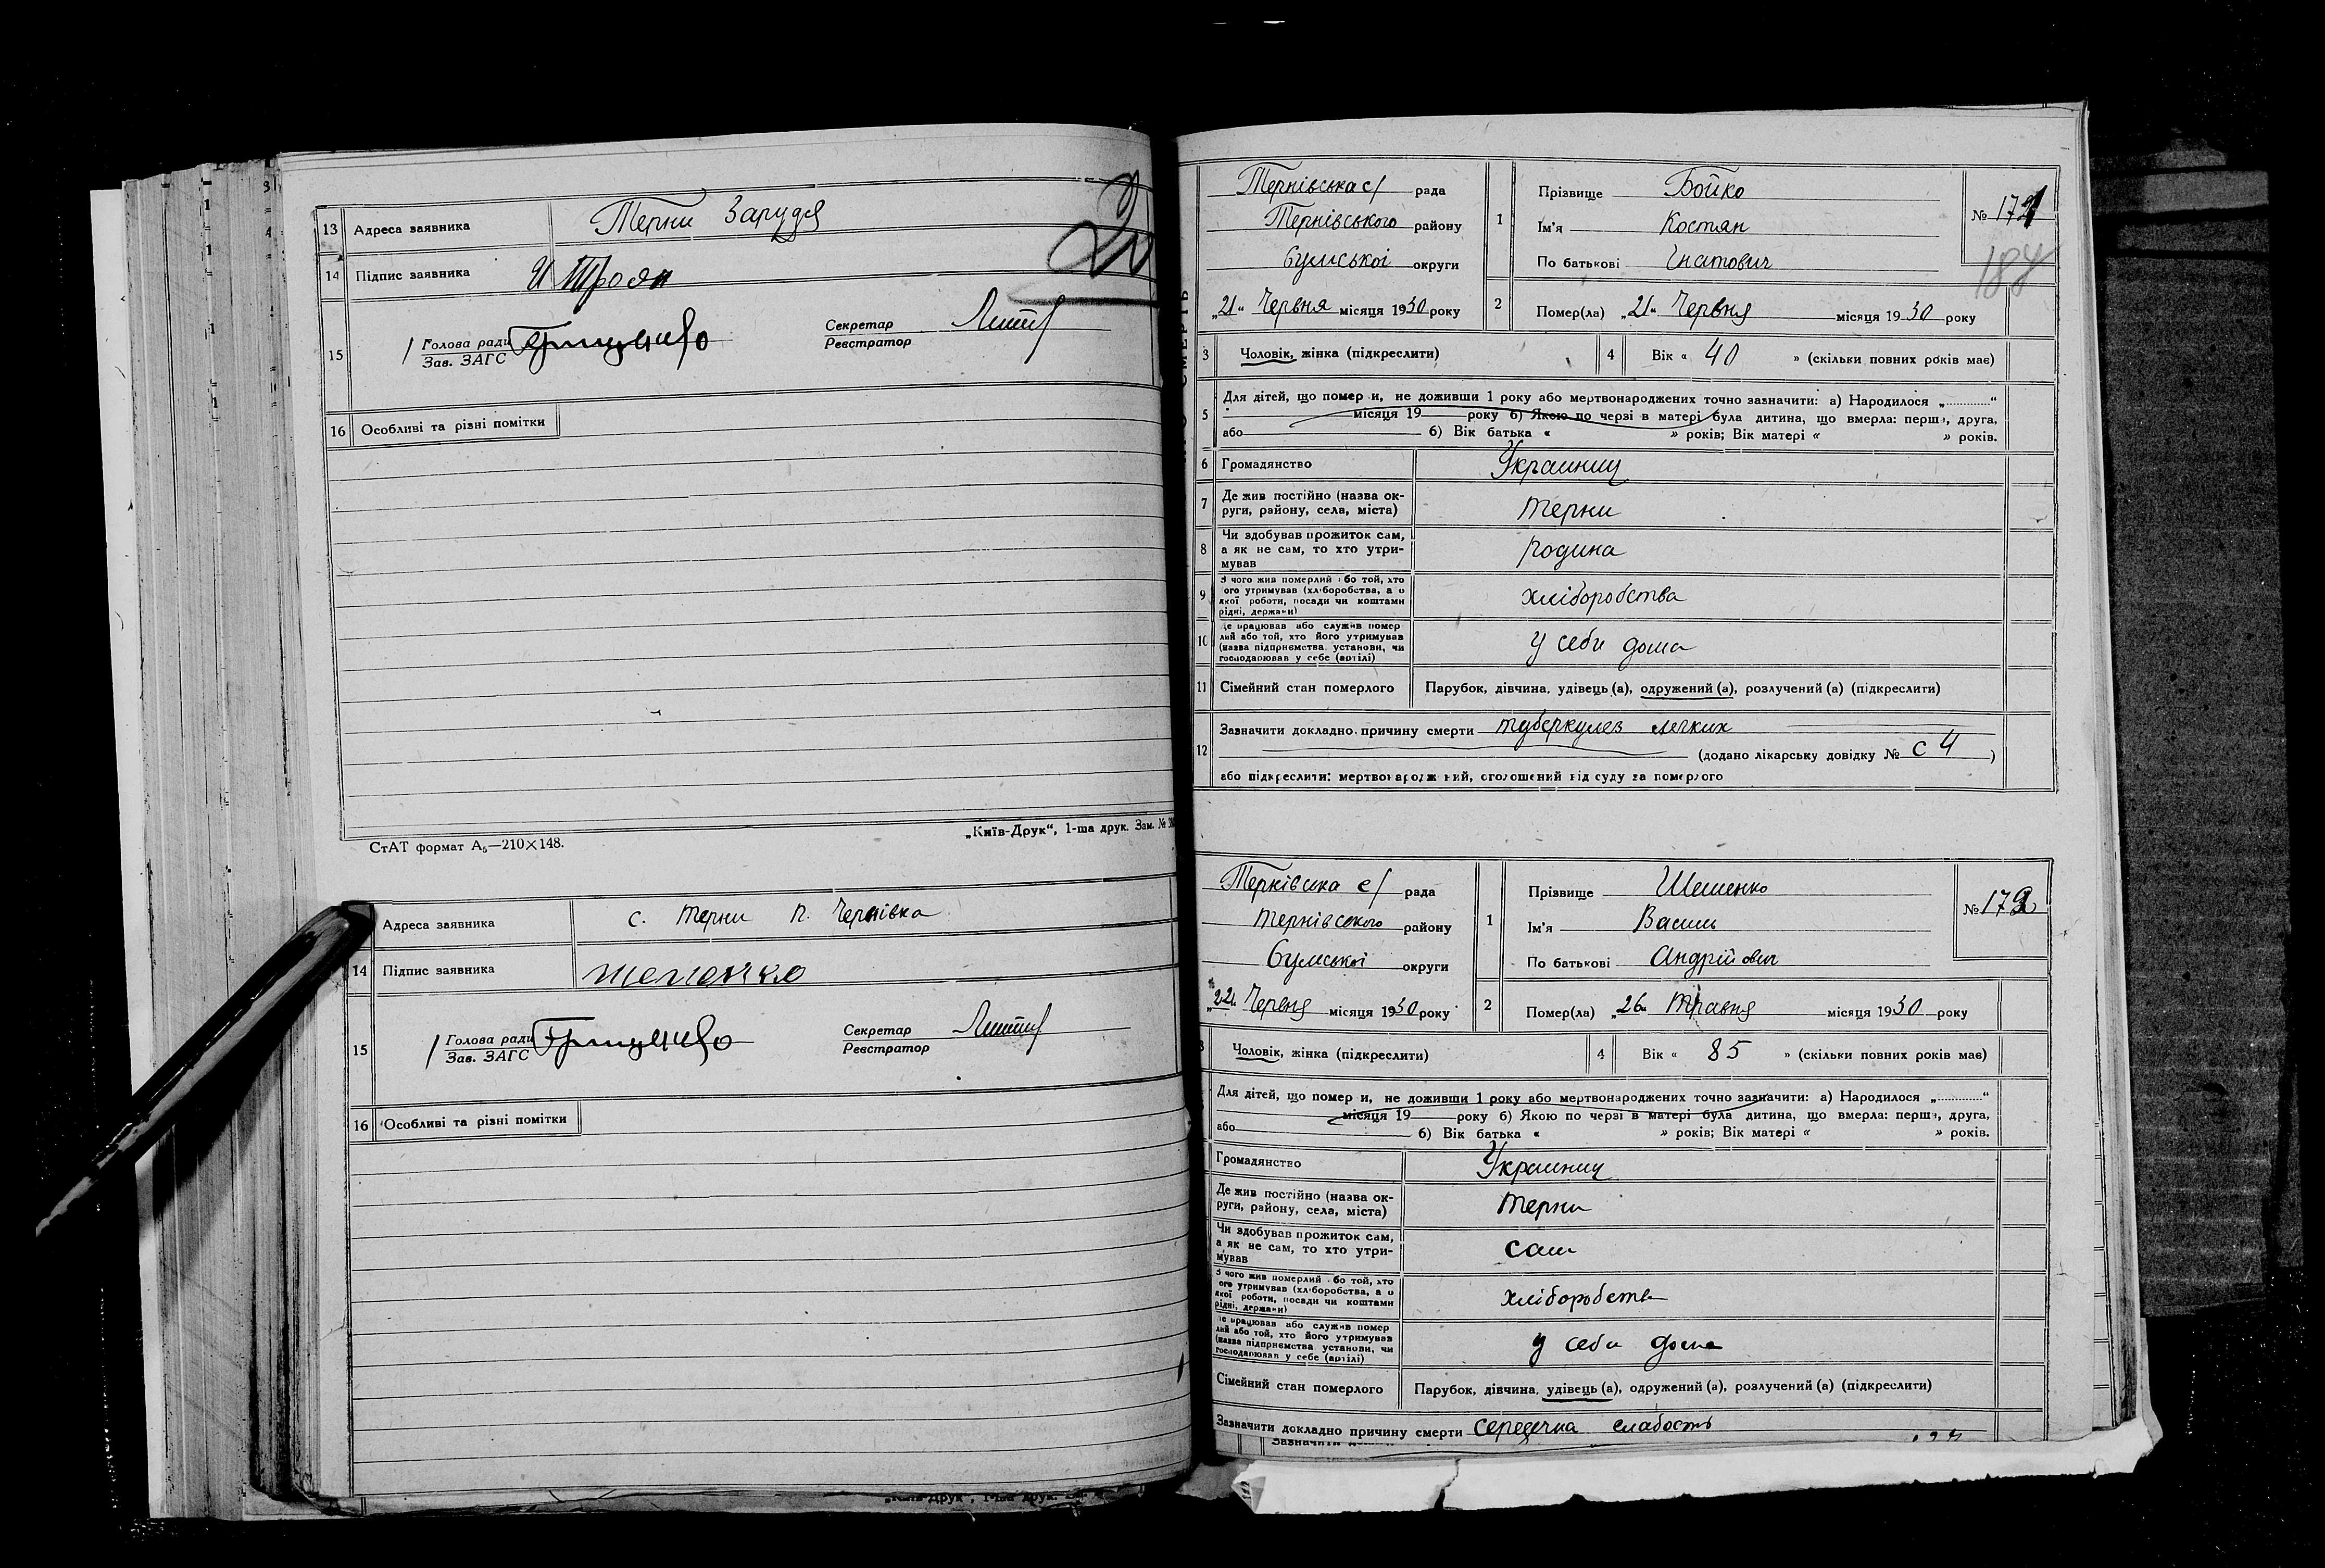 13 Адреса заявника Терни Заруддя
14 Підпис заявника И Троян
15 Голова ради
Зав. ЗАГС
Секретар
Реєстратор
16 Особливі та різні помітки
СтАТ формат А₅—210×148.
„Київ-Друк“, 1-ша друк. Зам. №
Адреса заявника с. Терни п. Чернівка
14 Підпис заявника шеменко
15 Голова ради
Зав. ЗАГС
Секретар
Реєстратор
16 Особливі та різні помітки
Тернівська с/ рада
Тернівського району
Сумської округи
„21“ Червня місяця 1930 року
1 Прізвище Бойко
Ім'я Костян
По батькові Гнатович
№ 171
184
2 Помер(ла) „21“ Червня місяця 1930 року
3 Чоловік, жінка (підкреслити)
4 Вік « 40 » (скільки повних років має)
5 Для дітей, що померли, не доживши 1 року або мертвонароджених точно зазначити: а) Народилося „............“
місяця 19 року б) Якою по черзі в матері була дитина, що вмерла: перша, друга,
або б) Вік батька « » років; Вік матері « » років.
6 Громадянство Украинец
7 Де жив постійно (назва ок-
руги, району, села, міста) Терни
8 Чи здобував прожиток сам,
а як не сам, то хто утри-
мував родина
9 З чого жив померлий або той, хто
його утримував (хліборобства, а о
якої роботи, посади чи коштами
рідні, держави) хліборобства
10 Де працював або служив помер
лий або той, хто його утримував
(назва підприємства, установи, чи
господарював у себе (артілі) у себи дома
11 Сімейний стан померлого Парубок, дівчина, удівець (а), одружений (а), розлучений (а) (підкреслити)
12 Зазначити докладно причину смерти туберкулез легких
(додано лікарську довідку № с 4 )
або підкреслити: мертвонароджений, оголошений від суду за померлого
Тернівська с/ рада
Тернівського району
Сумської округи
„22“ Червня місяця 1930 року
1 Прізвище Шеменко
Ім'я Василь
По батькові Андрійович
№ 172
2 Помер(ла) „26“ Травня місяця 1930 року
3 Чоловік, жінка (підкреслити)
4 Вік « 85 » (скільки повних років має)
Для дітей, що померли, не доживши 1 року або мертвонароджених точно зазначити: а) Народилося „............“
місяця 19 року б) Якою по черзі в матері була дитина, що вмерла: перша, друга,
або б) Вік батька « » років; Вік матері « » років.
Громадянство Украинец
Де жив постійно (назва ок-
руги, району, села, міста) Терни
Чи здобував прожиток сам,
а як не сам, то хто утри-
мував сам
З чого жив померлий або той, хто
його утримував (хліборобства, а о
якої роботи, посади чи коштами
рідні, держави) хліборобств
Де працював або служив помер
лий або той, хто його утримував
(назва підприємства установи, чи
господарював у себе (артілі) у себи дома
Сімейний стан померлого Парубок, дівчина, удівець (а), одружений (а), розлучений (а) (підкреслити)
Зазначити докладно причину смерти середечна слабость